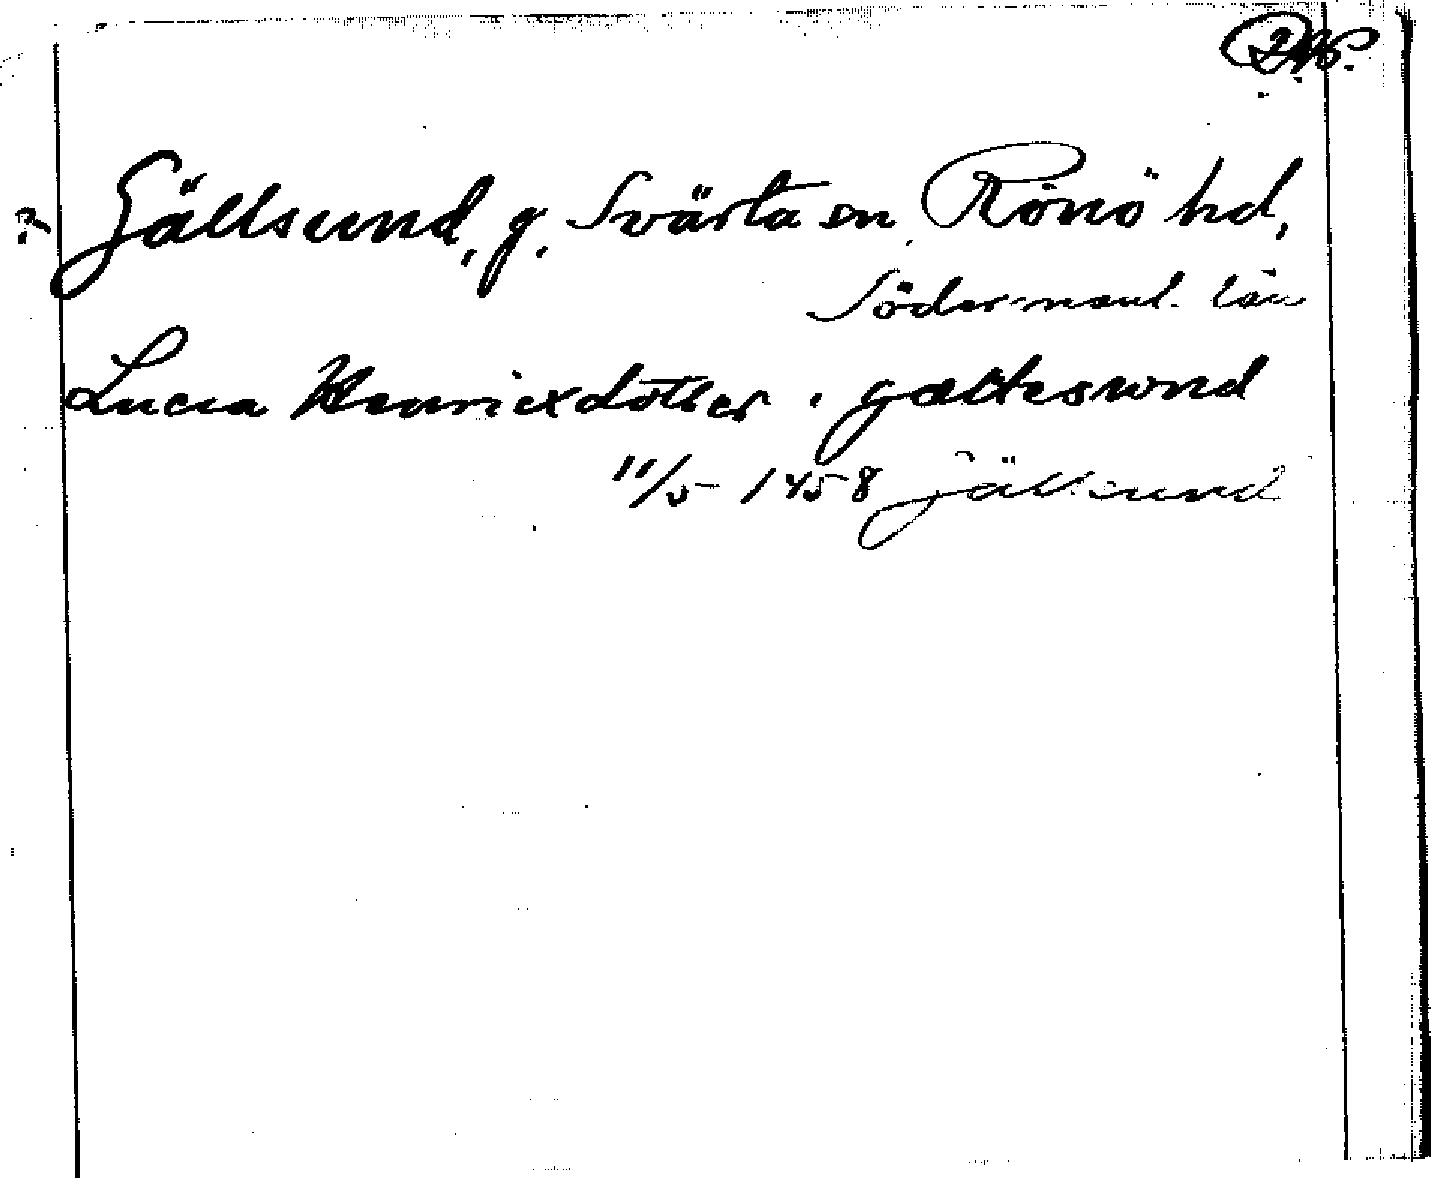 ? Gällsund, g. Svärta sn, Rönö hd,
Södermanl. län
Lucia Henricxdotter i gællesund
11/5 1458 Gällsund